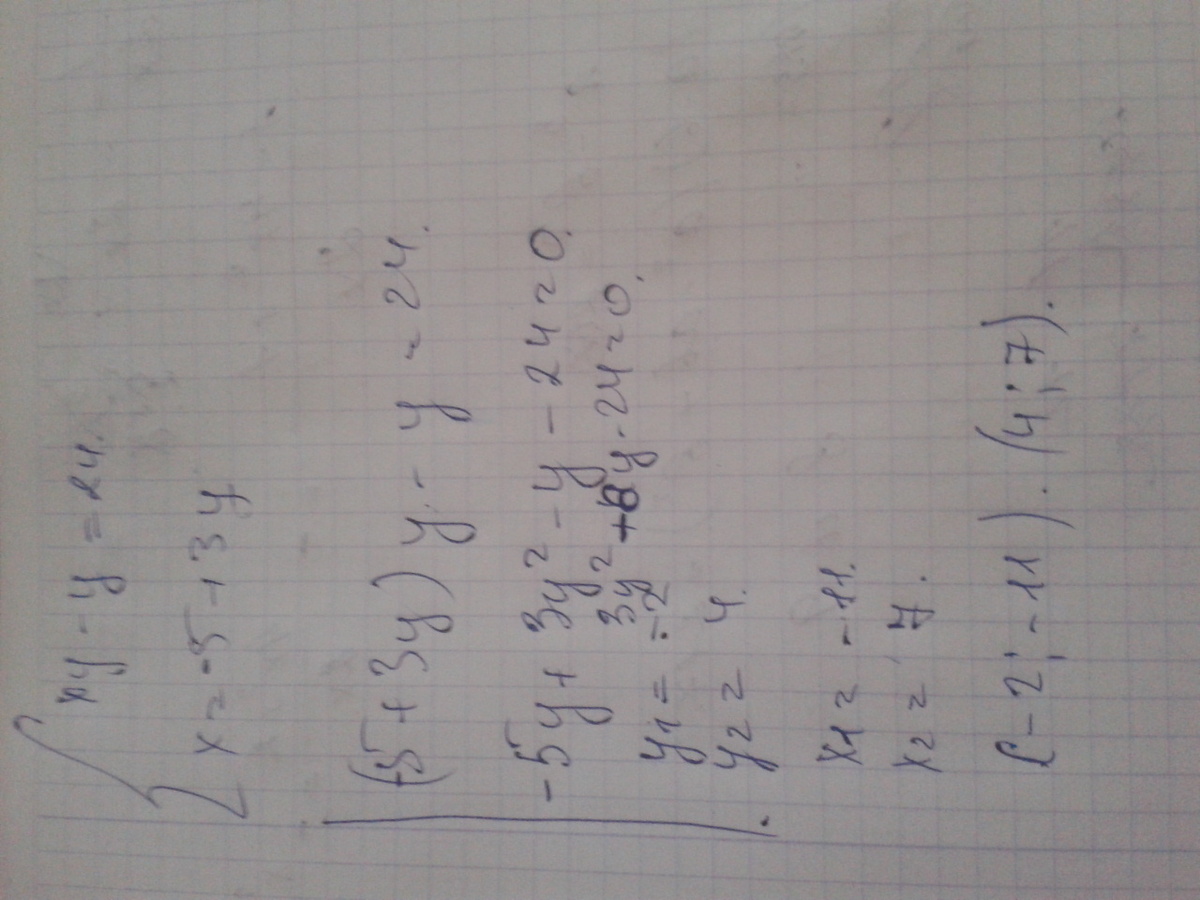 xy - y = 24.
x = -5 + 3y
(-5 + 3y) y - y = 24.
-5y + 3y² - y - 24 = 0.
3y² + 8y - 24 = 0.
y1 = -2
y2 = 4.
x1 = -11.
x2 = 7.
(-2; -11). (4; 7).